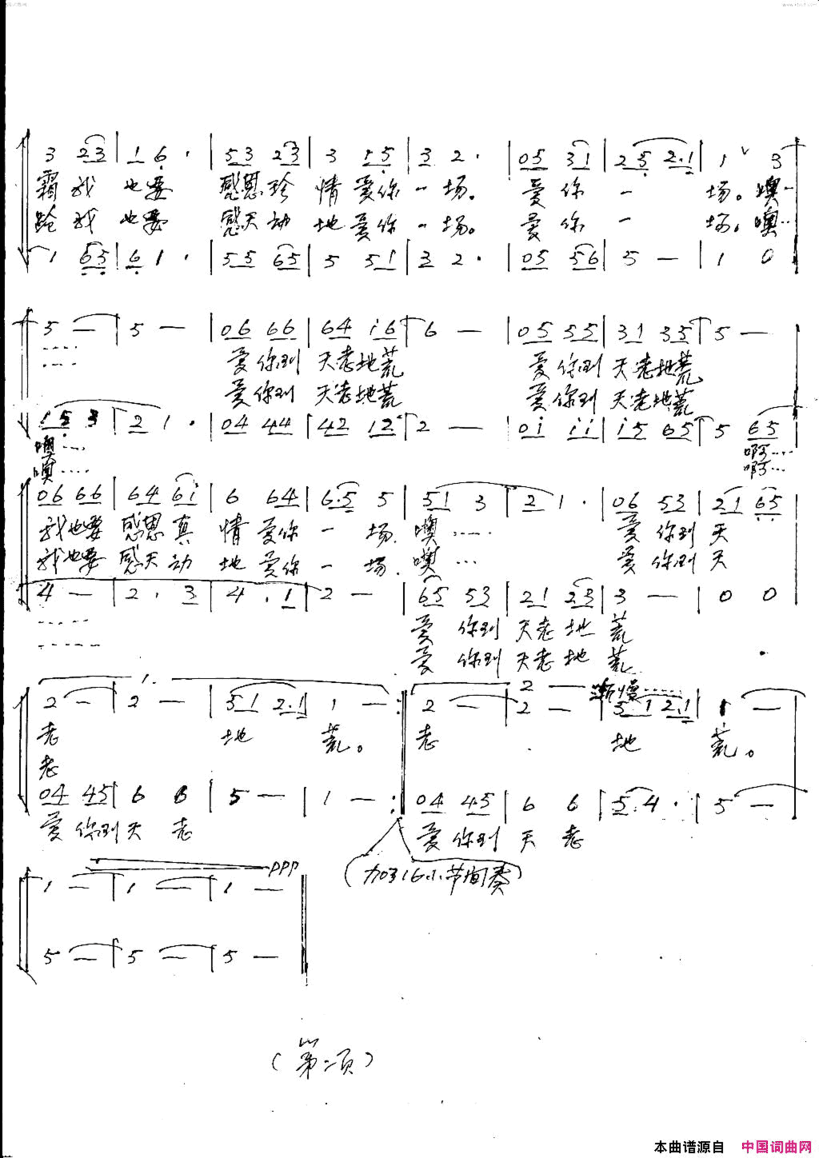 3 23 | 1 6 · | 53 23 | 3 1 5 | 3 2 · | 05 31 | 25 2·1 | 1 ˅ 3
霜 我 也要 感恩 珍 情 爱你 一 场。 爱 你 一 场。噢…
我 也要 感天 动 地 爱你 一 场。 爱 你 一 场。噢…
1 65 | 6 1 · | 55 65 | 5 51 | 3 2 · | 05 56 | 5 — | 1 0
5 — | 5 — | 06 66 | 64 i6 | 6 — | 05 55 | 31 35 | 5 —
……
爱你到 天老地荒 爱你到 天老地荒
爱你到 天老地荒 爱你到 天老地荒
153 | 2 1 · | 04 44 | 42 12 | 2 — | 0i ii | i5 65 | 5 65
噢… 啊…
噢… 啊…
06 66 | 64 6i | 6 64 | 6·5 5 | 51 3 | 2 1 · | 06 53 | 21 65
我也要 感恩 真 情 爱你 一 场. 噢… 爱 你到 天
我也要 感天 动 地 爱你 一 场. 噢… 爱 你到 天
4 — | 2 · 3 | 4 · 1 | 2 — | 65 53 | 21 23 | 3 — | 0 0
…… 爱 你到 天老 地 荒
…… 爱 你到 天老 地 荒
1. 2 渐慢……
2 — | 2 — | 31 2·1 | 1 — :| 2 — | 2 — | 51 2·1 | 1 —
老 地 荒。 老 地 荒。
老
04 45 | 6 6 | 5 — | 1 — :| 04 45 | 6 6 | 5·4 · | 5 —
爱 你到 天 老 爱 你到 天 老
(加316小节间奏)
ppp
1 — | 1 — | 1 —
5 — | 5 — | 5 —
(第二页)
本曲谱源自 中国词曲网